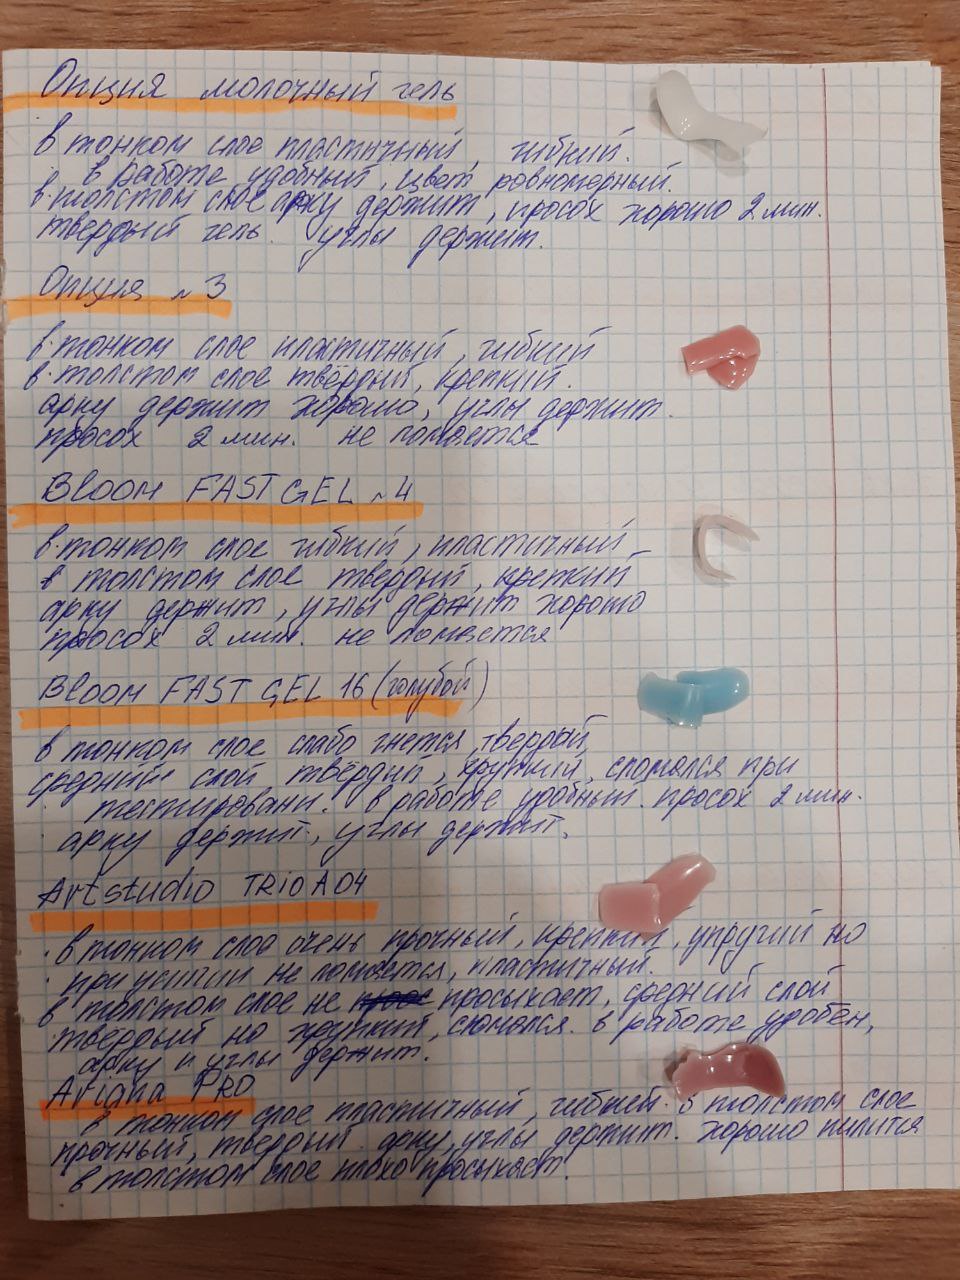 Опция молочный гель
в тонком слое пластичный, гибкий.
в работе удобный, цвет равномерный.
в толстом слое арку держит, просох хорошо 2 мин.
твердый гель. углы держит.
Опция №3
в тонком слое пластичный, гибкий
в толстом слое твёрдый, крепкий.
арку держит хорошо, углы держит.
просох 2 мин. не ломается
Bloom FAST GEL №4
в тонком слое гибкий, пластичный
в толстом слое твердый, крепкий
арку держит, углы держит хорошо
просох 2 мин. не ломается
Bloom FAST GEL 16 (голубой)
в тонком слое слабо гнется, твердый
средний слой твёрдый, хрупкий, сломался при
тестировани. в работе удобный. просох 2 мин.
арку держит, углы держит.
Artstudio TRIO A04
в тонком слое очень прочный, крепкий, упругий но
при усилии не ломается, пластичный.
в толстом слое не просыхает, средний слой
твёрдый но хрупкий, сломался. в работе удобен,
арку и углы держит.
Ariana PRO
в тонком слое пластичный, гибкий. в толстом слое
прочный, твердый. арку, углы держит. хорошо пилится
в толстом слое плохо просыхает.